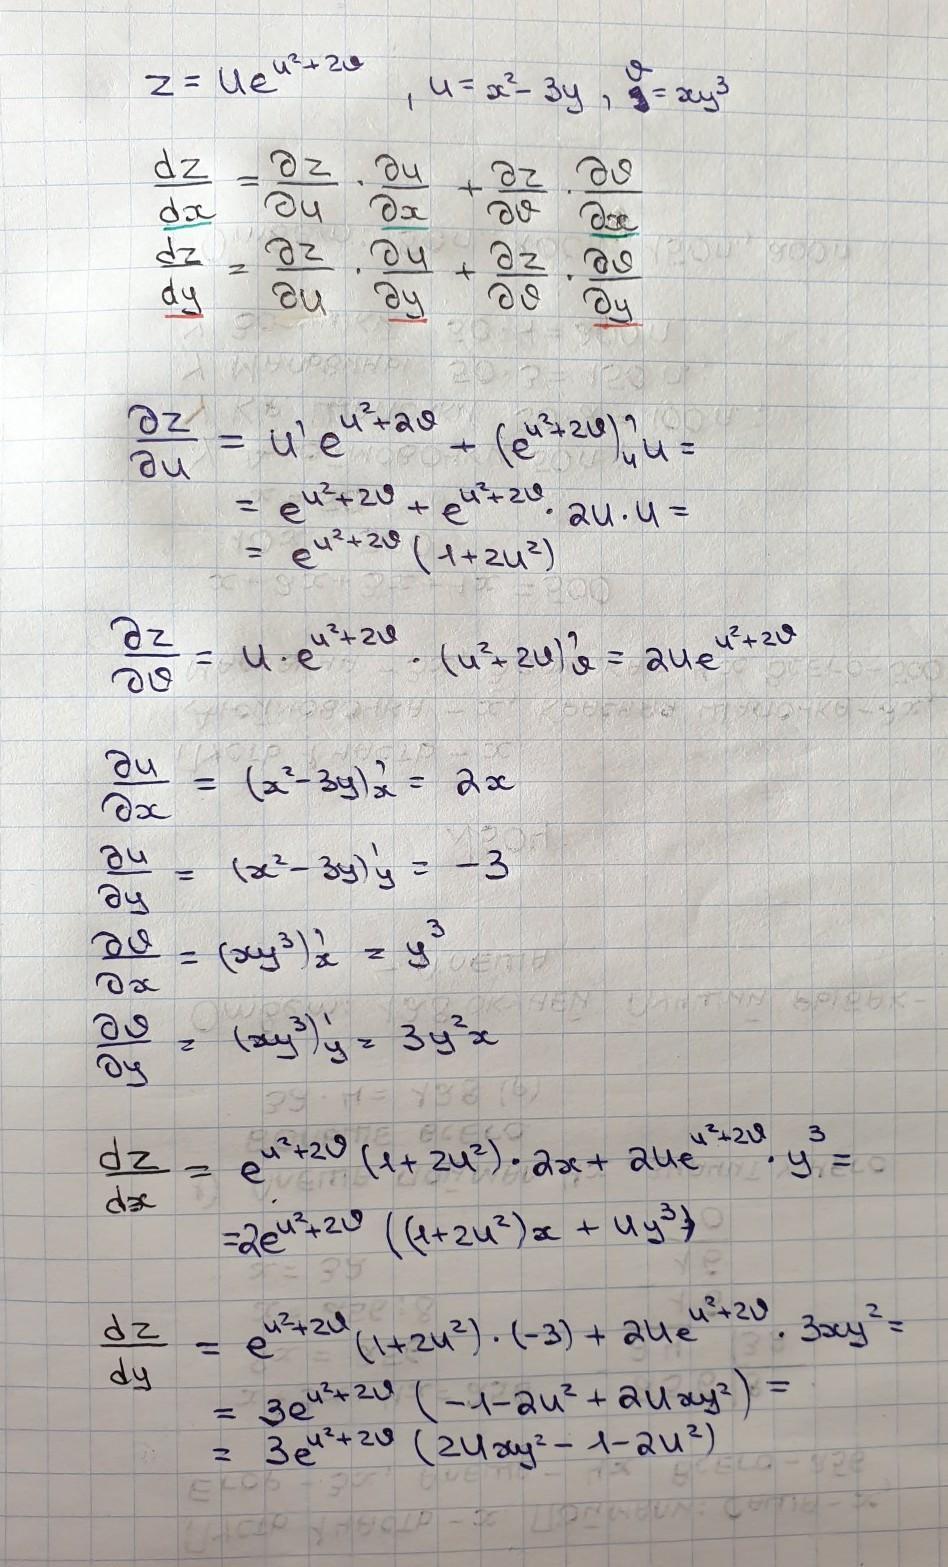 z = ue^{u²+2ϑ}, u = x² - 3y, ϑ = xy³
dz/dx = ∂z/∂u · ∂u/∂x + ∂z/∂ϑ · ∂ϑ/∂x
dz/dy = ∂z/∂u · ∂u/∂y + ∂z/∂ϑ · ∂ϑ/∂y
∂z/∂u = u'e^{u²+2ϑ} + (e^{u²+2ϑ})'_u u =
= e^{u²+2ϑ} + e^{u²+2ϑ} · 2u · u =
= e^{u²+2ϑ} (1+2u²)
∂z/∂ϑ = u · e^{u²+2ϑ} · (u²+2ϑ)'_ϑ = 2ue^{u²+2ϑ}
∂u/∂x = (x²-3y)'_x = 2x
∂u/∂y = (x²-3y)'_y = -3
∂ϑ/∂x = (xy³)'_x = y³
∂ϑ/∂y = (xy³)'_y = 3y²x
dz/dx = e^{u²+2ϑ} (1+2u²) · 2x + 2ue^{u²+2ϑ} · y³ =
= 2e^{u²+2ϑ} ((1+2u²)x + uy³)
dz/dy = e^{u²+2ϑ} (1+2u²) · (-3) + 2ue^{u²+2ϑ} · 3xy² =
= 3e^{u²+2ϑ} (-1-2u² + 2uxy²) =
= 3e^{u²+2ϑ} (2uxy² - 1 - 2u²)